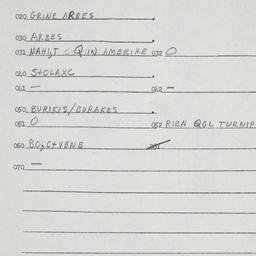 020 GRINE ARBES
030 ARBES
031 NAHIT Q IN AMERIKE 032 O
040 STOLAXC
041 — 042 —
050 BURIKIS/BURAKES
051 O 052 RIBN QGL TURNIP
060
070 —